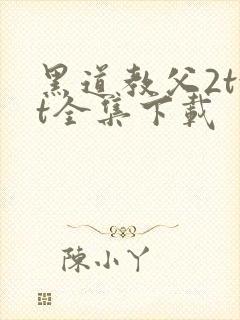 黑道教父2t
t全集下載
陳小丫